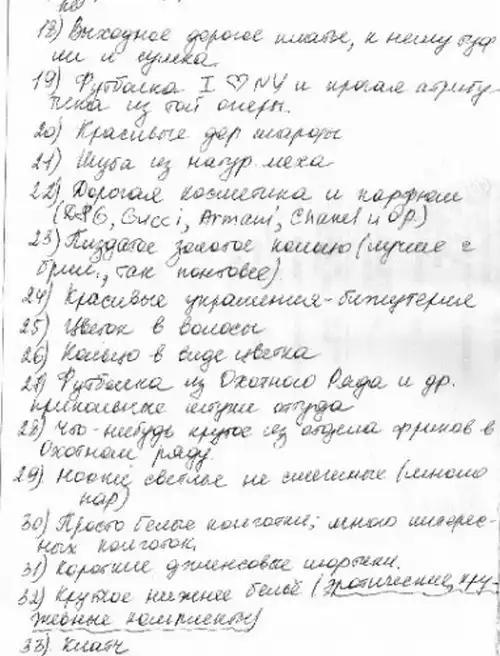 18) Выходное дорогое платье, к нему туф
ли и сумка.
19) Футболка I ♡ NY и прочая атрибу-
тика из той оперы.
20) Красивые дор шарфы
21) Шуба из натур. меха
22) Дорогая косметика и парфюм
(D&G, Gucci, Armani, Chanel и др.)
23) Пиздатое золотое кольцо (лучше с
брил., так понтовее)
24) Красивые украшения-бижутерия
25) Цветок в волосы
26) Кольцо в виде цветка
27) Футболка из Охотного Ряда и др.
прикольные штуки оттуда
28) Что-нибудь крутое из отдела фриков в
Охотном ряду.
29) Носки светлые не смешные (много
пар)
30) Просто белые колготки; много интерес-
ных колготок.
31) Короткие джинсовые шортики.
32) Крутое нижнее бельё (эротические, кру-
жевные комплекты)
33) Клатч